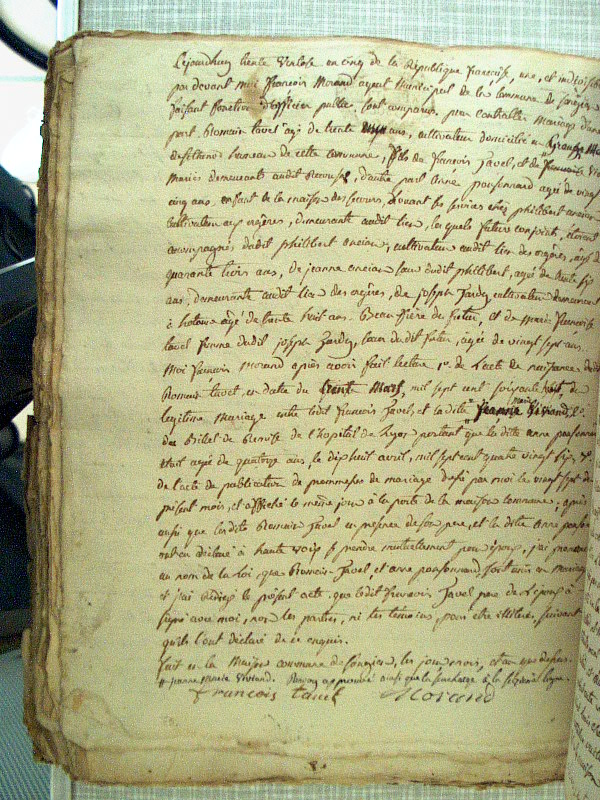 Cejourdhuy trente Ventose an cinq de la République française, une, et indivisible
par devant moi françois Morand agent Municipal de la commune de
faisant fonction d'officier public, sont comparus, pour contracter Mariage d'une
part Romain tavel agé de trente ans, cultivateur domicilié en
hameau de cette commune, fils de françois tavel, et de
Mariés demeurants audit d'autre part Anne ponsonnard agée de vingt
cinq ans, enfant de la maison de secours, philibert ancian
cultivateur aux orgères, demeurante audit lieu, lesquels futurs conjoints, étoient
accompagnés dudit philibert ancian, cultivateur audit lieu des orgères, agé de
quarante trois ans, de jeanne ancian sœur dudit philibert, agée de trente six
ans, demeurante audit lieu des orgères, de joseph Tardy cultivateur demeurant
à agé de trente huit ans Beau frère du futur, et de Marie françoise
tavel femme dudit joseph Tardy, sœur dudit futur, agée de vingt sept ans
Moi françois Morand après avoir fait lecture 1°. de L'acte de naissance dudit
Romain tavel en date du trente Mars, mil sept cent soixante de
legitime Mariage entre ledit françois tavel, et la dite jeanne marie 2°.
du Billet de de l'hopital de portant que la dite anne ponsonnard
etait agée de quatorze ans le dix huit avril, mil sept cent quatre vingt six, 3°.
de l'acte de publication de promesses de mariage par moi le vingt sept du
présent mois, et affiché le même jour à la porte de la maison commune; après
aussi que lesdits Romain tavel en présence de son pere, et la dite Anne ponson
nard ont déclaré à haute voix se prendre mutuellement pour époux, j'ai prononcé
au nom de la loi, que Romain tavel, et anne ponsonnard, sont unis en mariage
et j'ai rédigé le présent acte que ledit françois tavel pere de L'époux a
signé avec moi, non les parties, ni les temoins, pour être illitéré, suivant
qu'ils l'ont déclaré de ce enquis.
fait en la Maison commune de les jour, mois, et an que dessus.
# jeanne marie Renvoy approuvé ainsi que la surcharge à la ligne.
francois tavel Morand